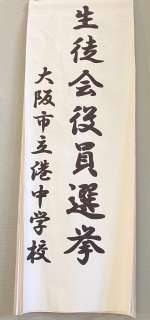 生徒会役員選挙
大阪市立港中学校